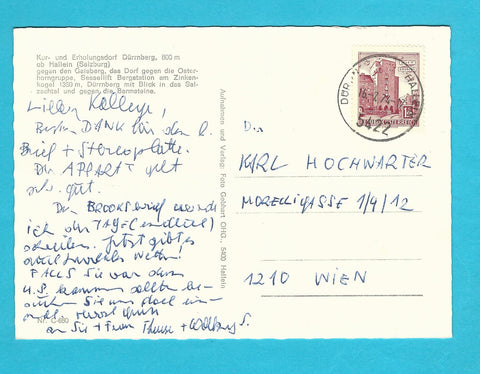 Kur- und Erholungsdorf Dürrnberg, 800 m
ob Hallein (Salzburg)
gegen den Gaisberg, das Dorf gegen die Oster-
horngruppe, Sessellift Bergstation am Zinken-
kogel 1339 m, Dürrnberg mit Blick in das Sal-
zachtal und gegen die Barmsteine.
Lieber Kollege,
Besten DANK für den l.
Brief + Stereoplatte.
Der APPARAT geht
sehr gut.
Den BROOKS
ich der TAGE (endlich)
schreiben. Jetzt gibt es
Wetter!
FALLS Sie vor dem
kommen sollten be-
suchen Sie uns doch ein-
mal,
an Sie + Frau Therese + S.
Nr. C-660
Aufnahmen und Verlag: Foto Gebhart OHG., 5400 Hallein
5422
REPUBLIK ÖSTERREICH
KARL HOCHWARTER
MORELLIGASSE 1/9/12
1210 WIEN